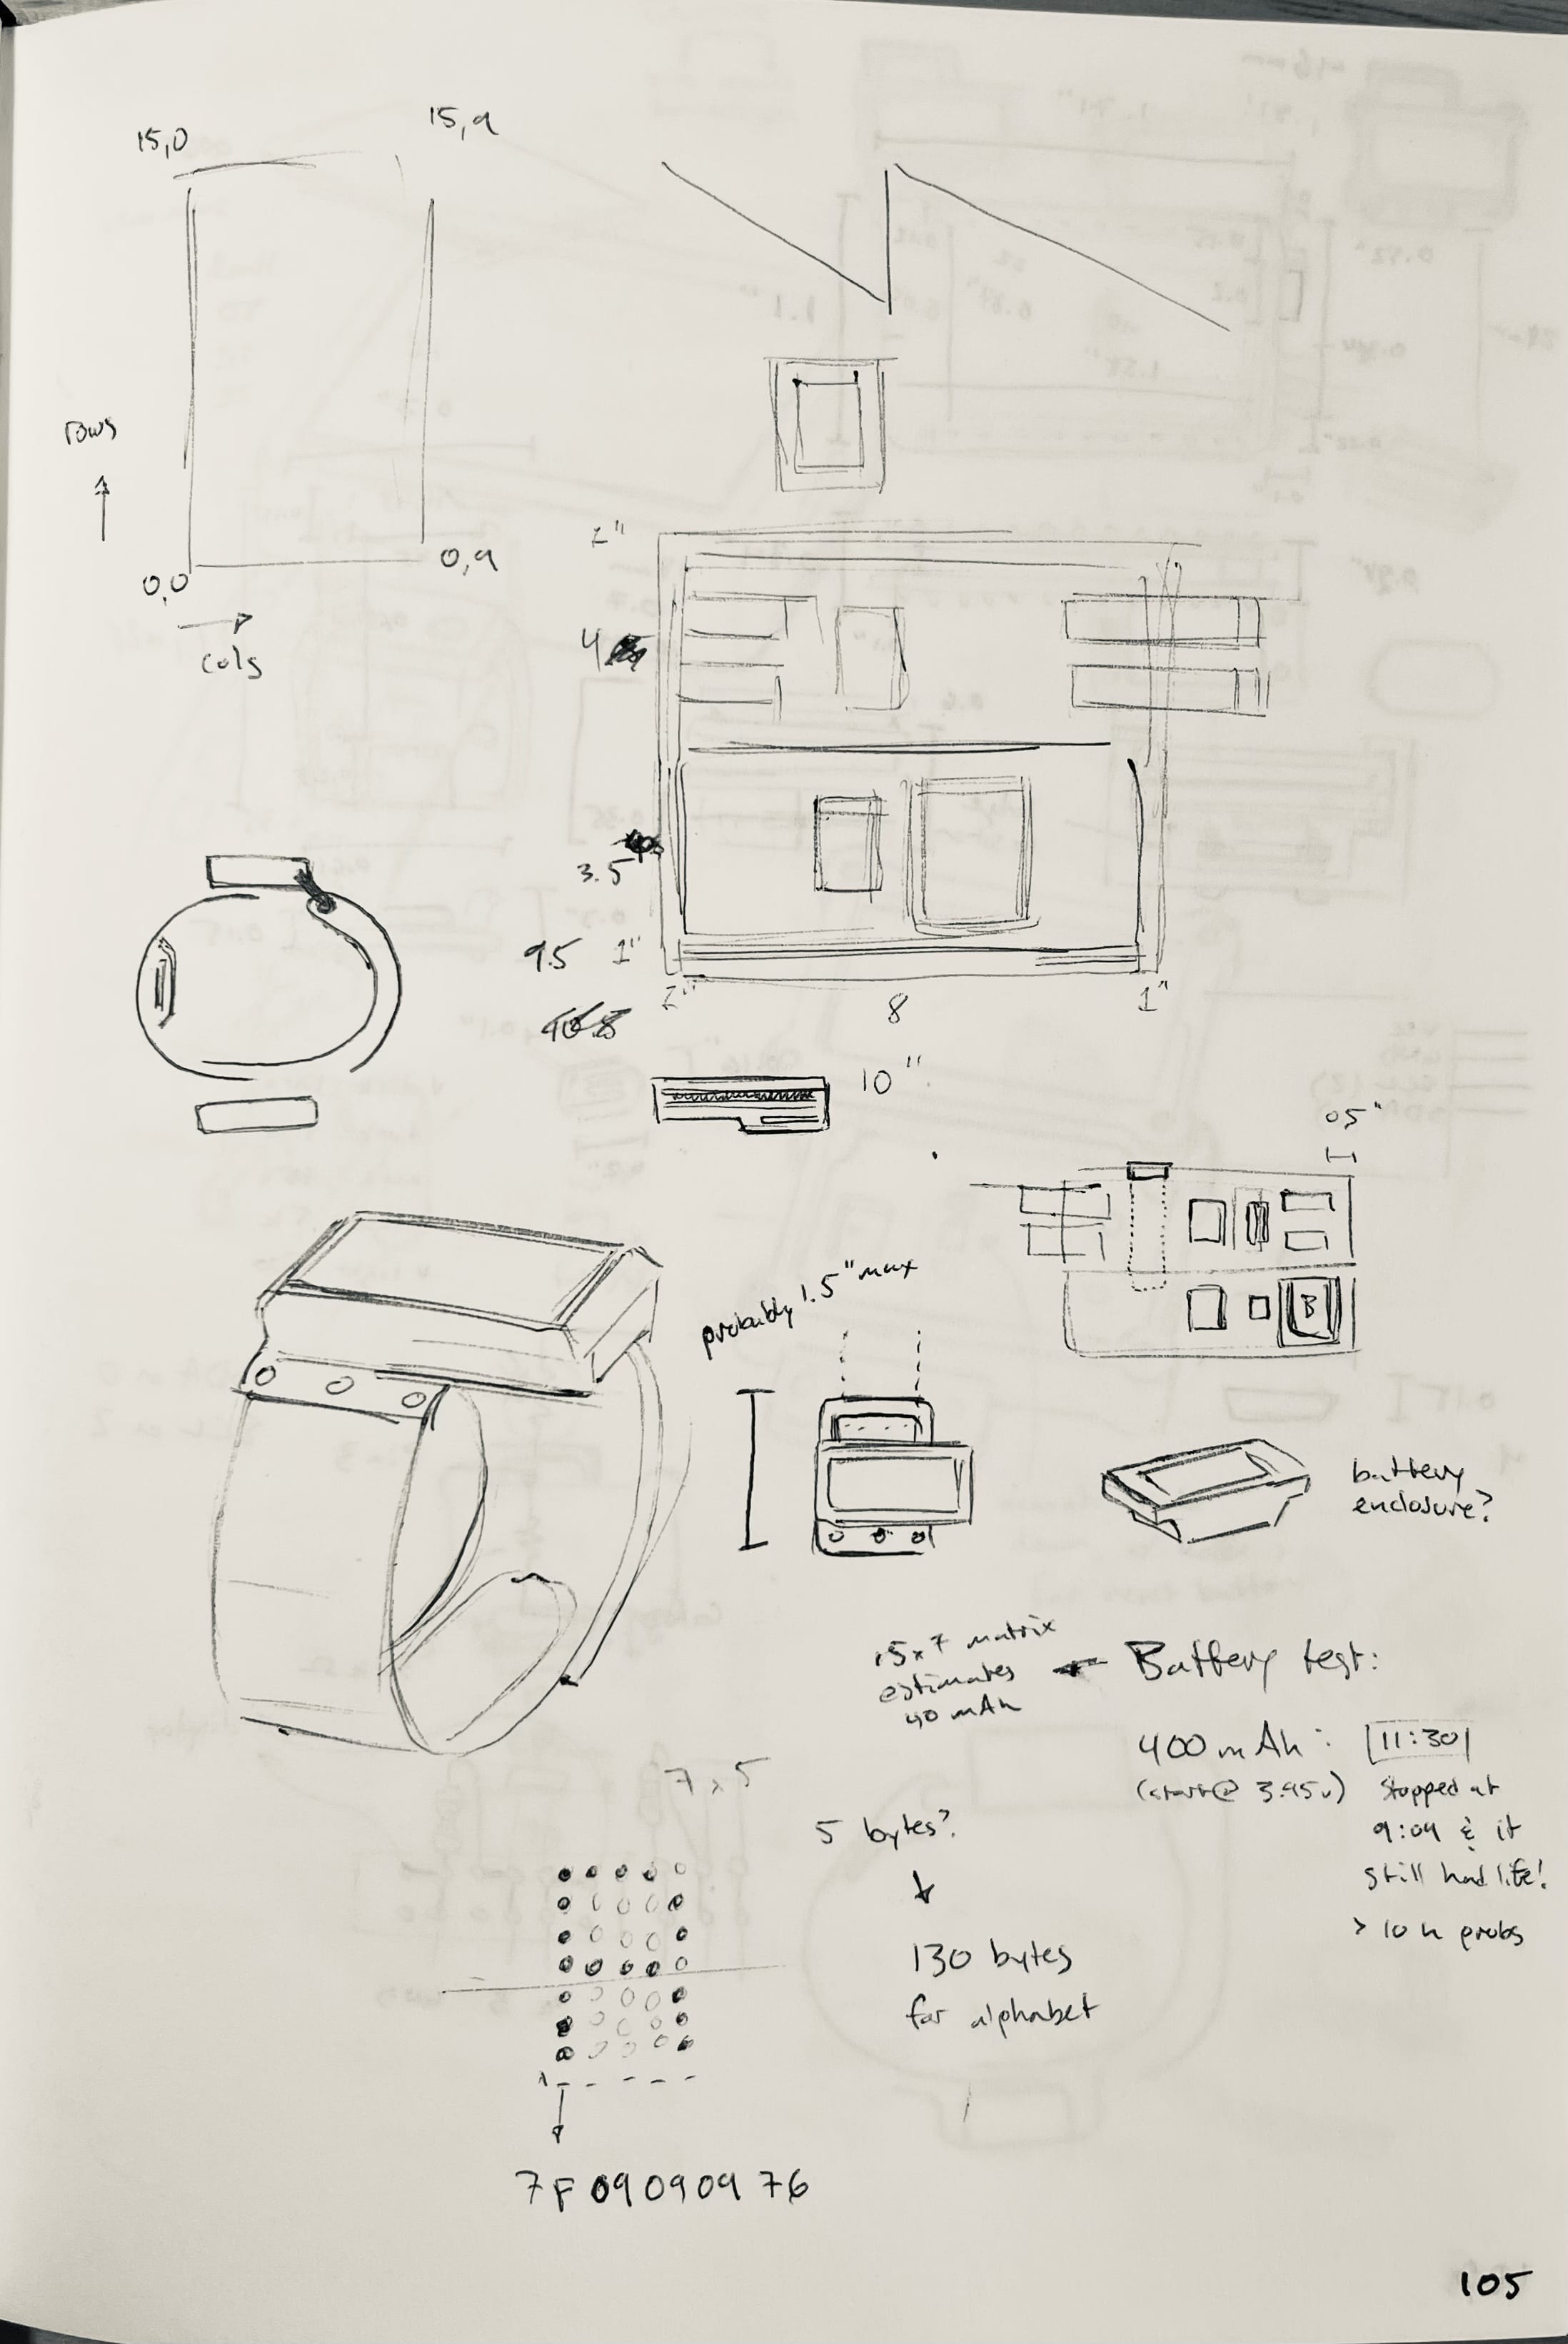 15,0
15,9
rows
0,0
0,9
cols
1"
4
3.5"
9.5
1"
1"
8
1"
10"
05"
probably 1.5" max
B
battery
enclosure?
15x7 matrix
estimates
40 mAh
Battery test:
400 mAh:
11:30
(start@ 3.95v)
Stopped at
9:09 & it
still had life!
> 10 h probs
7x5
5 bytes?
130 bytes
for alphabet
7F 09 09 09 76
105